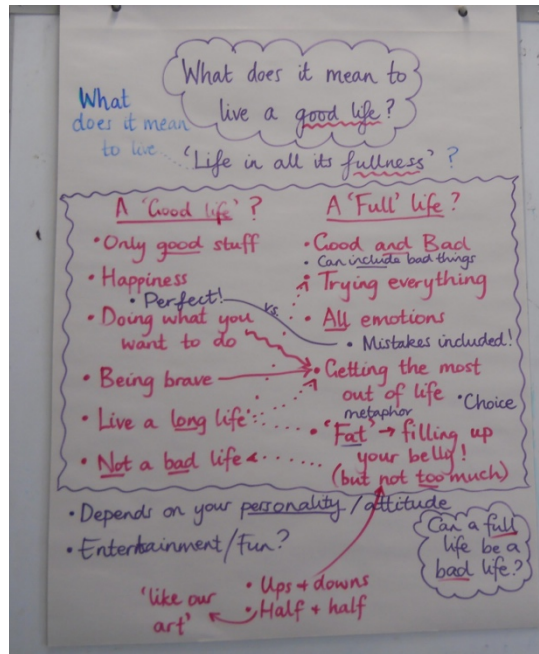 What does it mean to
live a good life?
What
does it mean
to live
'Life in all its fullness'?
A 'Good life'?
• Only good stuff
• Happiness
• Perfect!
• Doing what you
want to do
• Being brave
• Live a long life
• Not a bad life
vs.
A 'Full' life?
• Good and Bad
• Can include bad things
• Trying everything
• All emotions
• Mistakes included!
• Getting the most
out of life
• Choice
metaphor
• 'Fat' → filling up
your belly!
(but not too much)
• Depends on your personality/attitude
• Entertainment/Fun?
• Ups + downs
• Half + half
'like our
art'
Can a full
life be a
bad life?